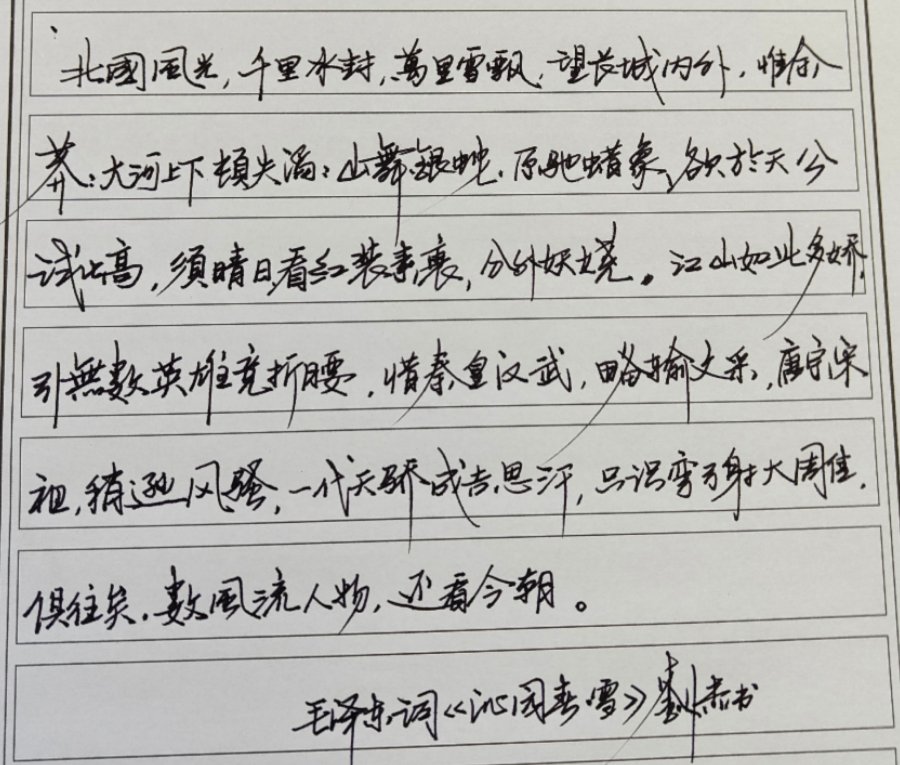 北國風光，千里冰封，萬里雪飄，望长城内外，惟余
莽；大河上下頓失滔；山舞銀蛇，原驰蜡象，欲於天公
试比高，须晴日看红装素裹，分外妖娆。江山如此多娇，
引無數英雄竞折腰，惜秦皇汉武，略输文采，唐宗宋
祖，稍逊风骚，一代天骄成吉思汗，只识弯弓射大周隹，
俱往矣，數風流人物，还看今朝。
毛泽东词《沁园春雪》劉 书